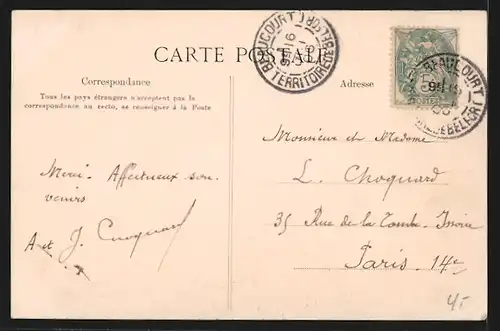 CARTE POSTALE
Correspondance
Tous les pays étrangers n'acceptent pas la
correspondance au recto, se renseigner à la Poste
Merci - Affectueux sou-
venirs
A et J. Choquard
Adresse
BEAUCOURT
TERRITOIRE DE BELFORT
BEAUCOURT
DE BELFORT
POSTES
Monsieur et Madame
L. Choquard
35 Rue de la Tombe-Issoire
Paris. 14e